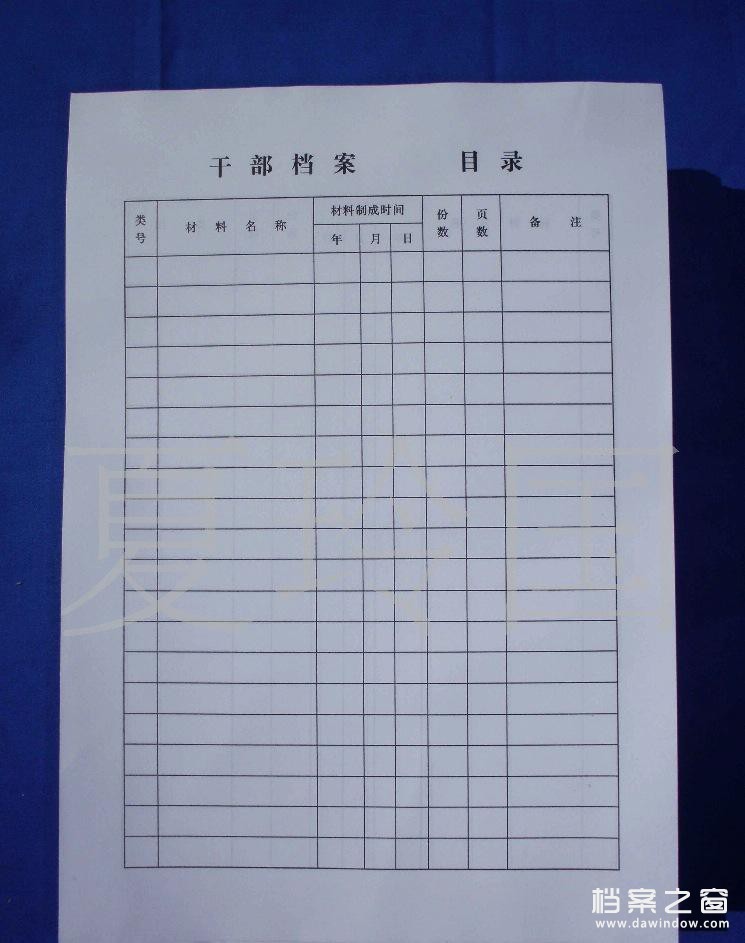 干部档案 目录
类号 材料名称 材料制成时间 份数 页数 备注
年 月 日
夏玲国
档案之窗
www.dawindow.com